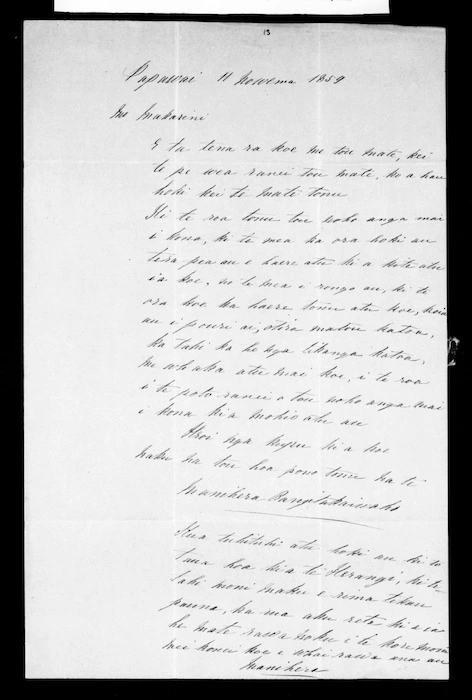 13
Papawai 11 Nowema 1859
Mr Makarini
E ta tena ra koe me tou mate, kei
te pe wea ranei tou mate, ko a hau
hoki kei te mate tonu
Hi te roa tonu tou noho anga mai
i kona, ki te mea ka ora hoki au
tera pea au e haere atu ki a kite atu
ia koe, no te mea i rongo au, ki te
ora koe ka haere tonu atu koe, koia
au i pouri ai, otira matou katoa,
ka tahi ka he nga tikanga katoa,
me whaka atu mai koe, i te roa
i te poto ranei o tou noho anga mai
i kona kia mohio atu au
Heoi nga kupu ki a koe
naku na tou hoa pono tonu na te
Manihera Rangitakaiwaho
Kua tuhituhi atu hoki au ki to
taua hoa ki a te Herangi, ki te
tahi moni maku e rima tekau
pauna, ka rua aku reta ki a ia
he mate rawa noku i te kore moni
mei konei koe e whai rawa ana au
Manihera